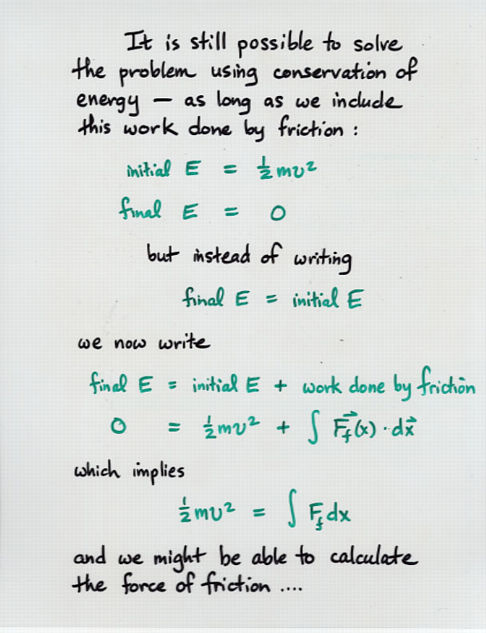 It is still possible to solve
the problem using conservation of
energy — as long as we include
this work done by friction :
initial E = ½mv²
final E = 0
but instead of writing
final E = initial E
we now write
final E = initial E + work done by friction
0 = ½mv² + ∫ F⃗_f(x) · dx⃗
which implies
½mv² = ∫ F_f dx
and we might be able to calculate
the force of friction ....